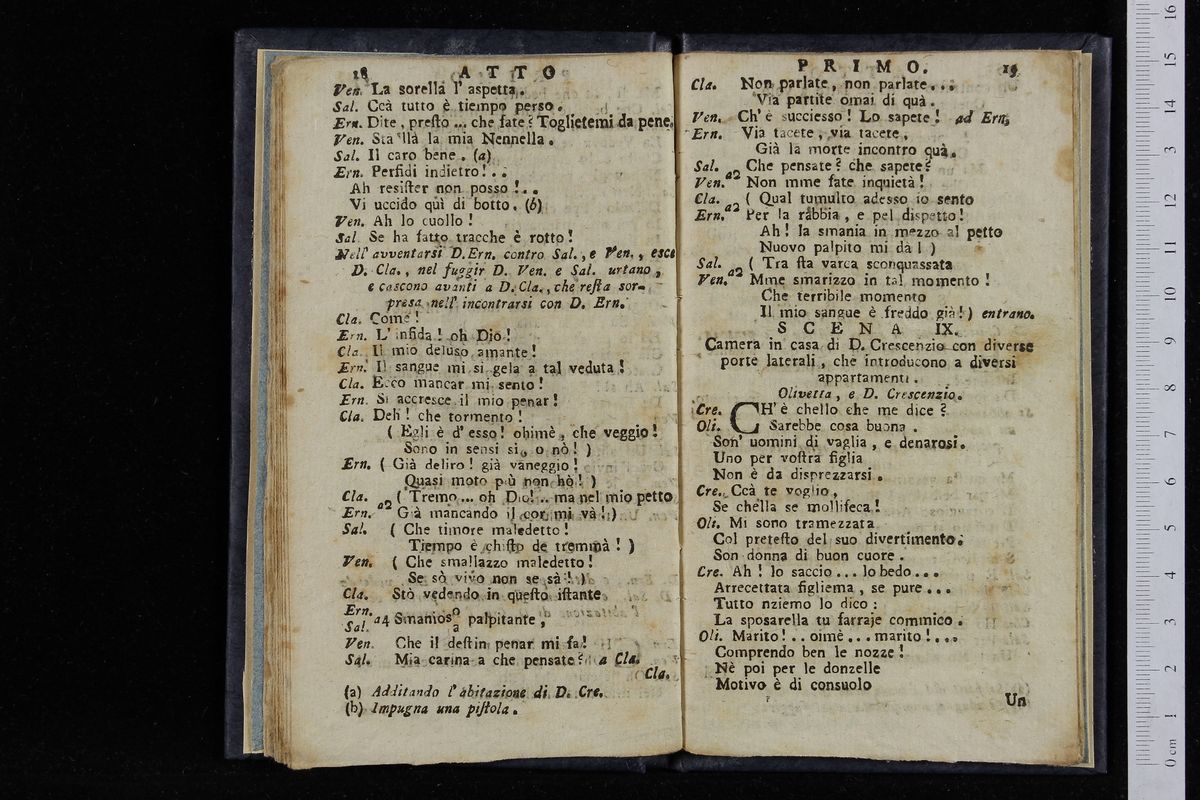 18 ATTO
Ven. La sorella l' aspetta.
Sal. Ccà tutto è tiempo perso.
Ern. Dite, presto ... che fate? Toglietemi da pene.
Ven. Sta llà la mia Nennella.
Sal. Il caro bene. (a)
Ern. Perfidi indietro!..
Ah resister non posso!..
Vi uccido quì di botto. (b)
Ven. Ah lo cuollo!
Sal. Se ha fatto tracche è rotto!
Nell' avventarsi D. Ern. contro Sal., e Ven., esce
D. Cla., nel fuggir D. Ven. e Sal. urtano,
e cascono avanti a D. Cla., che resta sor-
presa nell' incontrarsi con D. Ern.
Cla. Come!
Ern. L' infida! oh Dio!
Cla. Il mio deluso amante!
Ern. Il sangue mi si gela a tal veduta!
Cla. Ecco mancar mi sento!
Ern. Si accresce il mio penar!
Cla. Deh! che tormento!
( Egli è d' esso! ohimè, che veggio!
Sono in sensi si, o nò! )
Ern. ( Già deliro! già vaneggio!
Quasi moto più non hò! )
Cla. a2 ( Tremo ... oh Dio!.. ma nel mio petto
Ern. Già mancando il cor mi và! )
Sal. ( Che timore maledetto!
Tiempo è chisto de tremmà! )
Ven. ( Che smallazzo maledetto!
Se sò vivo non se sà! )
Cla. Stò vedendo in questo istante
Ern.
Sal. a4 Smanios o/a palpitante,
Ven. Che il destin penar mi fa!
Sal. Mia carina a che pensate? a Cla.
Cla.
(a) Additando l' abitazione di D. Cre.
(b) Impugna una pistola.
PRIMO. 19
Cla. Non parlate, non parlate...
Via partite omai di quà.
Ven. Ch' è succiesso! Lo sapete! ad Ern,
Ern. Via tacete, via tacete,
Già la morte incontro quà.
Sal. a2 Che pensate? che sapete?
Ven. Non mme fate inquietà!
Cla. a2 ( Qual tumulto adesso io sento
Ern. Per la rabbia, e pel dispetto!
Ah! la smania in mezzo al petto
Nuovo palpito mi dà! )
Sal. a2 ( Tra sta varca sconquassata
Ven. Mme smarizzo in tal momento!
Che terribile momento
Il mio sangue è freddo già!) entrano.
SCENA IX.
Camera in casa di D. Crescenzio con diverse
porte laterali, che introducono a diversi
appartamenti.
Olivetta, e D. Crescenzio.
Cre. CH' è chello che me dice?
Oli. Sarebbe cosa buona.
Son' uomini di vaglia, e denarosi.
Uno per vostra figlia
Non è da disprezzarsi.
Cre. Ccà te voglio,
Se chella se mollifeca!
Oli. Mi sono tramezzata
Col pretesto del suo divertimento.
Son donna di buon cuore.
Cre. Ah! lo saccio... lo bedo...
Arrecettata figliema, se pure...
Tutto nziemo lo dico:
La sposarella tu farraje commico.
Oli. Marito!.. oimè... marito!...
Comprendo ben le nozze!
Nè poi per le donzelle
Motivo è di consuolo
Un